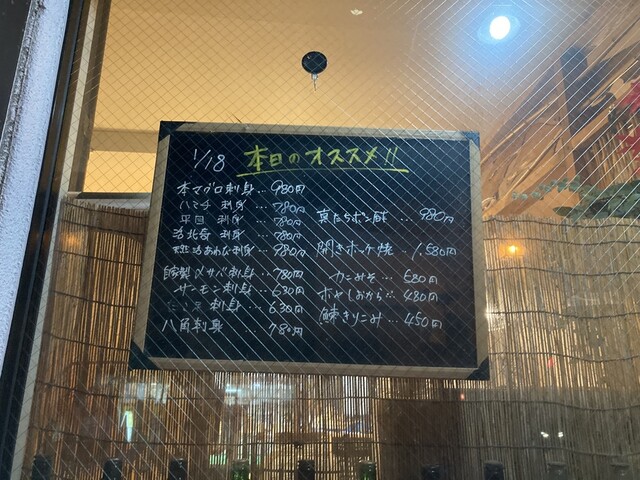 1/18 本日のオススメ!!
本マグロ刺身…980円
ハマチ 刺身…780円
平目 刺身…780円
活北寄 刺身…780円
活あわび刺身…980円
自家製〆サバ刺身…780円
サーモン刺身…630円
刺身…630円
八角刺身…780円
真たちポン酢…980円
開きホッケ焼…1,580円
カニみそ…580円
ホヤしおから…480円
鰊きりこみ…450円